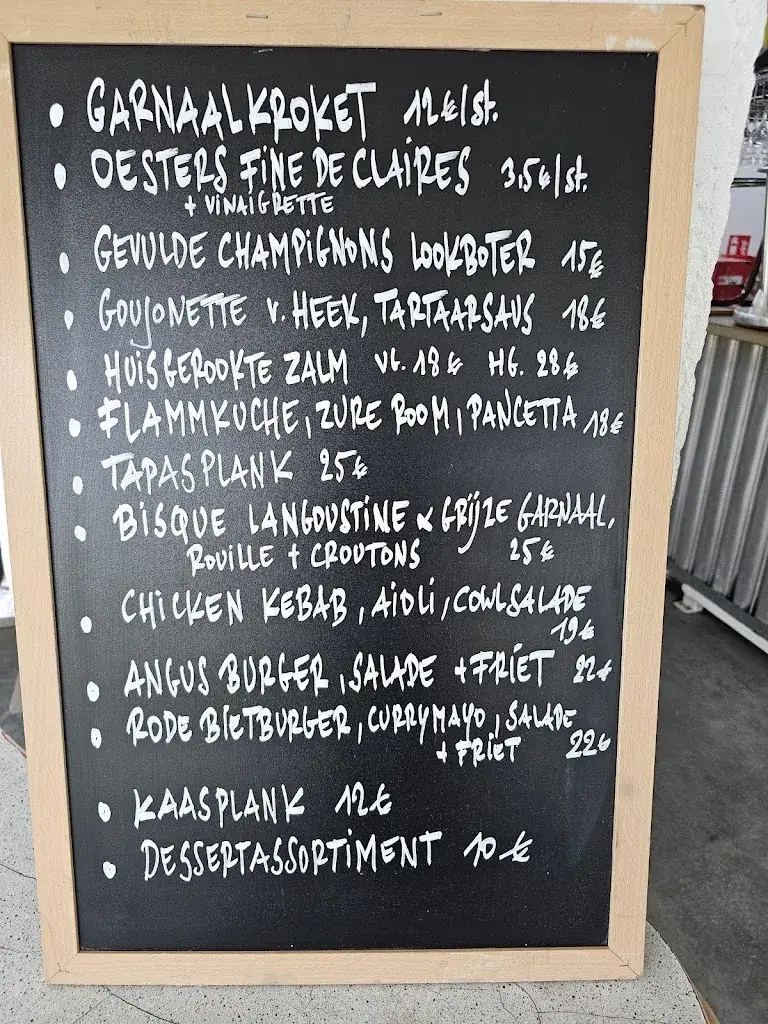 • GARNAALKROKET 12€/st.
• OESTERS FINE DE CLAIRES 3,5€/st.
+ VINAIGRETTE
• GEVULDE CHAMPIGNONS LOOKBOTER 15€
• GOUJONETTE v. HEEK, TARTAARSAUS 18€
• HUISGEROOKTE ZALM VG. 18€ HG. 28€
• FLAMMKUCHE, ZURE ROOM, PANCETTA 18€
• TAPASPLANK 25€
• BISQUE LANGOUSTINE & GRIJZE GARNAAL,
ROUILLE + CROUTONS 25€
• CHICKEN KEBAB, AIOLI, COWLSALADE
19€
• ANGUS BURGER, SALADE + FRIET 22€
• RODE BIETBURGER, CURRYMAYO, SALADE
+ FRIET 22€
• KAASPLANK 12€
• DESSERTASSORTIMENT 10€